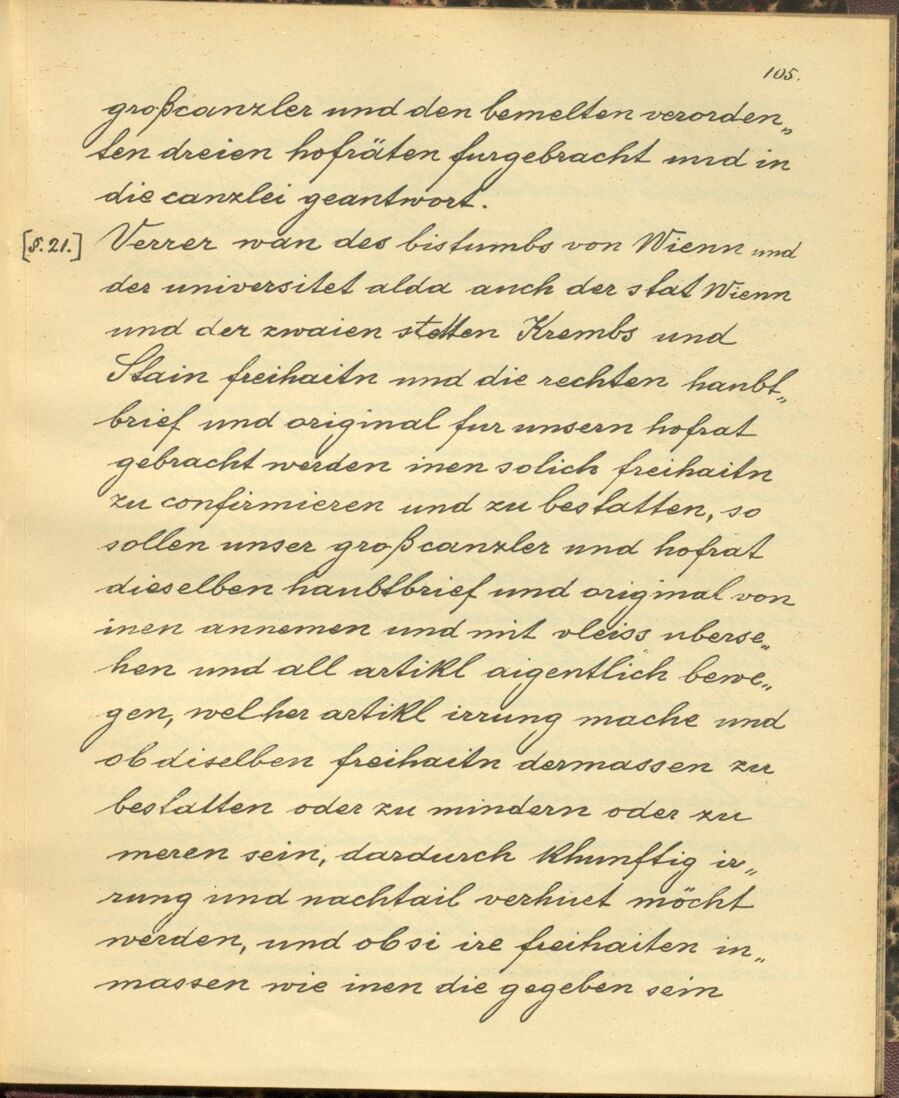 105.
großcanzler und den bemelten verorden„
ten dreien hofräten furgebracht und in
die canzlei geantwort.
[§. 21.] Verrer wan des bistumbs von Wienn und
der universitet alda auch der stat Wienn
und der zwaien stetten Krembs und
Stain freihaitn und die rechten haubt„
brief und original fur unsern hofrat
gebracht werden inen solich freihaitn
zu confirmieren und zu bestatten, so
sollen unser großcanzler und hofrat
dieselben haubtbrief und original von
inen annemen und mit vleiss uberse„
hen und all artikl aigentlich bewe„
gen, welher artikl irrung mache und
ob diselben freihaitn dermassen zu
bestatten oder zu mindern oder zu
meren sein, dardurch khunftig ir„
rung und nachtail verhuet möcht
werden, und ob si ire freihaiten in„
massen wie inen die gegeben sein